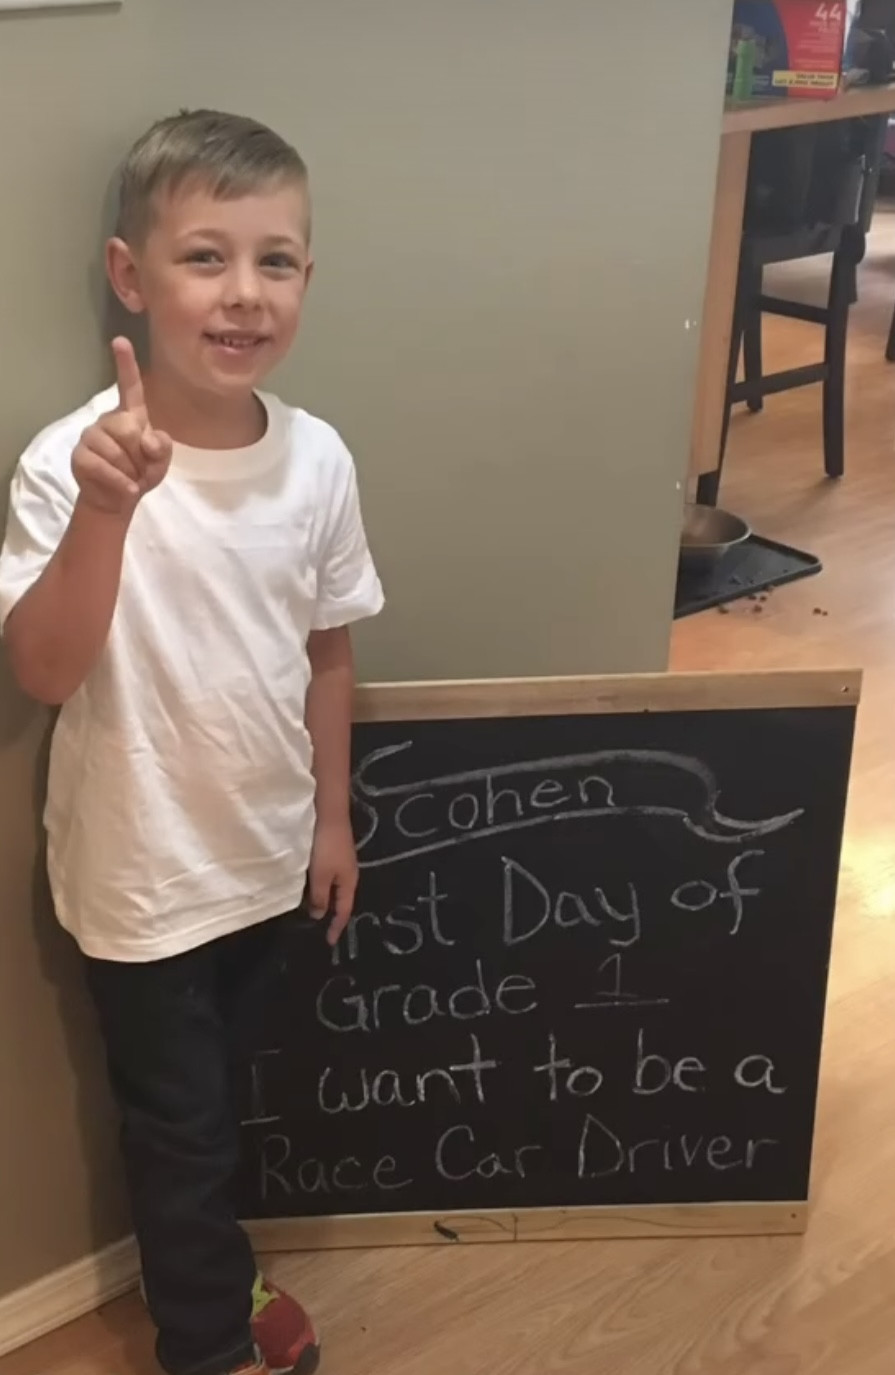 44
cohen
irst Day of
Grade 1
I want to be a
Race Car Driver